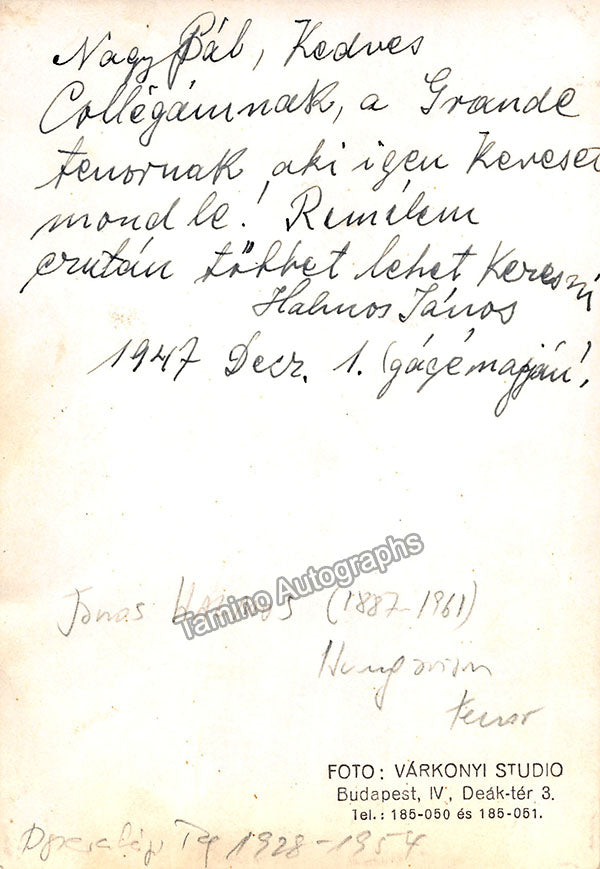 Nagy Pál, Kedves
Collégámnak, a Grande
tenornak, aki igen Keveset
mond le! Remélem
ezután többet lehet Keresni
Halmos János
1947 Decz. 1. (gázsé napján!
Tamino Autographs
Janos Halmos (1887-1961)
Hungarian
tenor
FOTO: VÁRKONYI STUDIO
Budapest, IV, Deák-tér 3.
Tel.: 185-050 és 185-051.
Tag 1928-1954